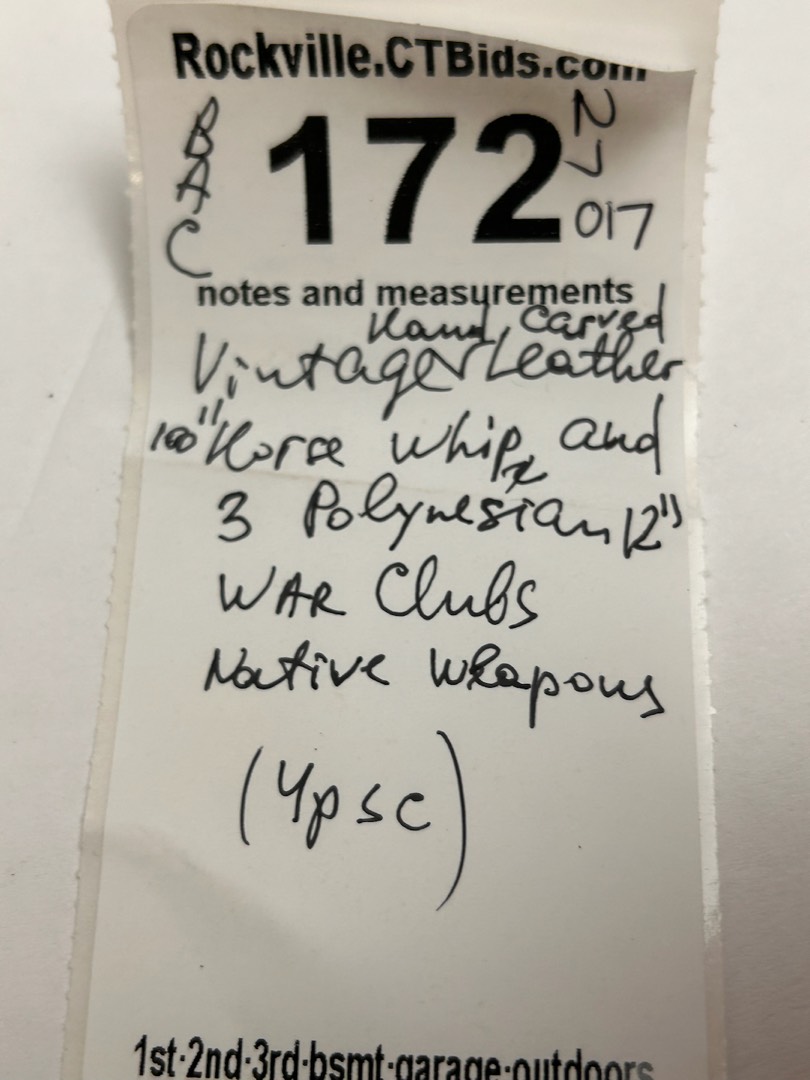 Rockville.CTBids.com
BAC
172
27
017
notes and measurements
Hand Carved
Vintage Leather
100" Horse whip, and
3 Polynesian 12"
WAR Clubs
Native weapons
(4psc)
1st·2nd·3rd·bsmt·garage·outdoors